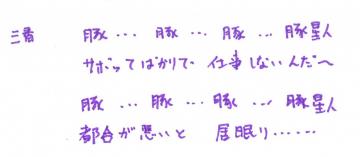 三番 豚… 豚… 豚… 豚星人
サボってばかりで 仕事しないんだ〜
豚… 豚… 豚… 豚星人
都合が悪いと 居眠り……